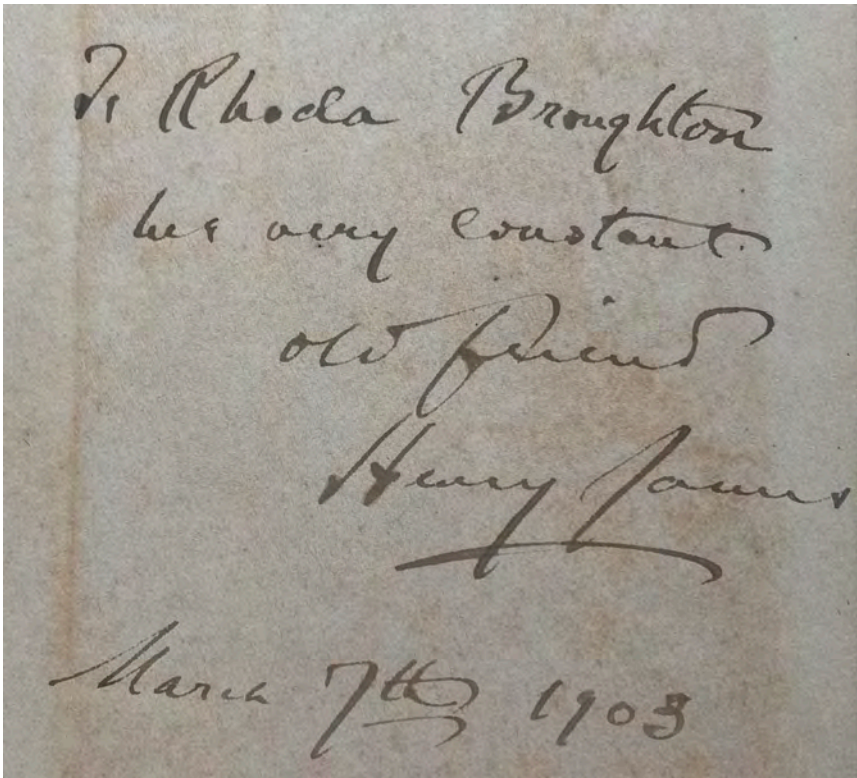 To Rhoda Broughton
her very constant
old friend
Henry James
March 7th 1903